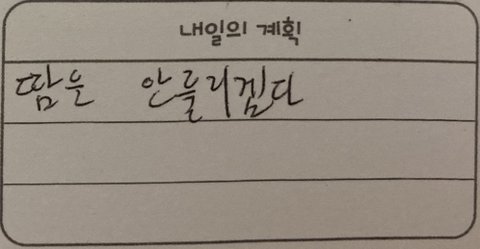 내일의 계획
땀을 안흘리겠다